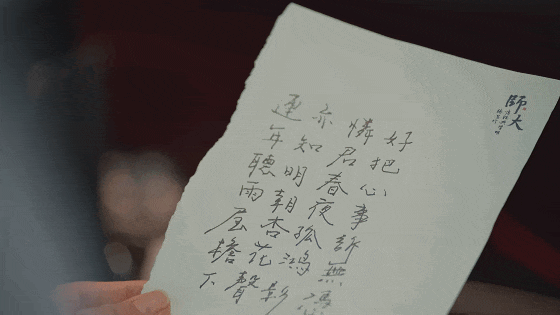 師大
好把心事訴無憑
憐君春夜孤鴻影
亦知明朝杏花聲
連年聽雨屋檐下